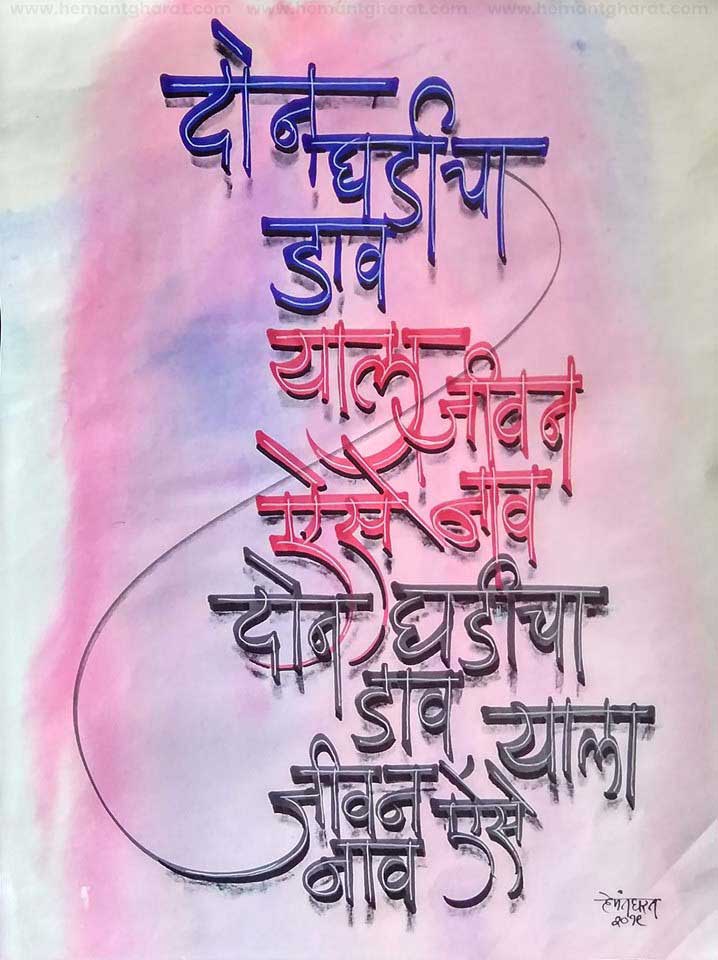 www.hemantgharat.com www.hemantgharat.com www.hemantgharat.com www.hemantgharat.com
दोन
घडीचा
डाव
याला
जीवन
ऐसे नाव
दोन घडीचा
डाव याला
जीवन ऐसे
नाव
हेमंत घरत
२०१९